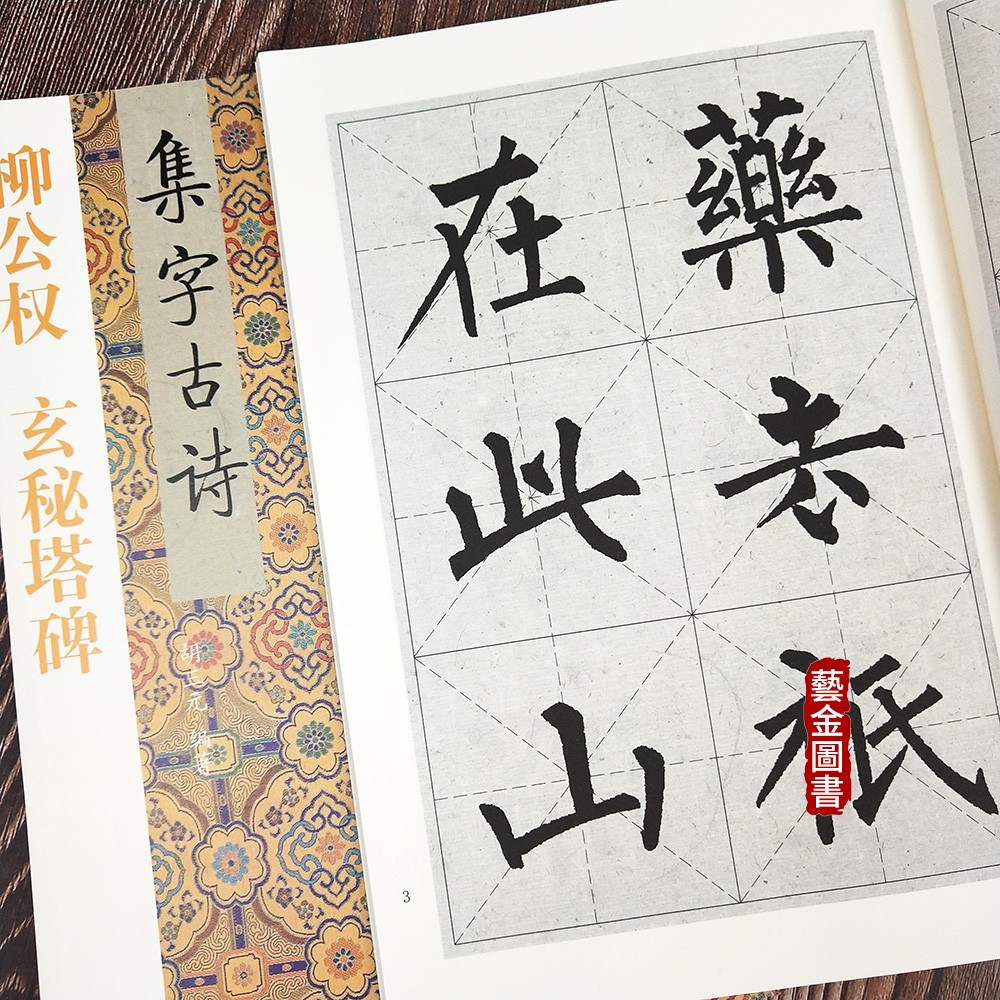 柳公权 玄秘塔碑
集字古诗
编著
藥去祇
在此山
3
藝金圖書